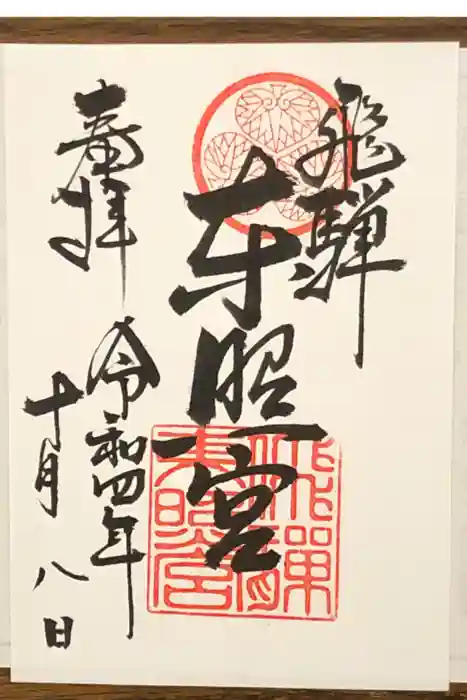 飛騨
東照宮
奉拝
令和四年
十月八日
飛騨
東照宮